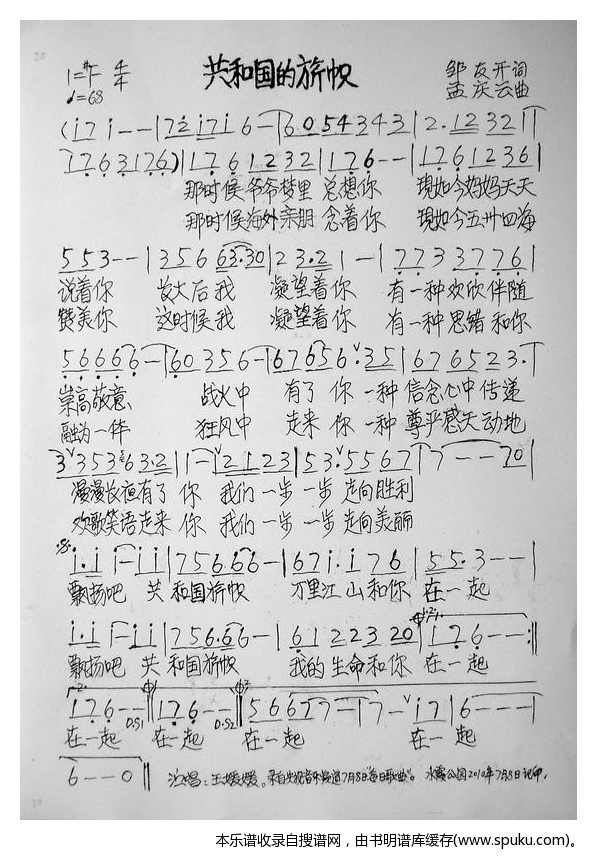 共和国的旂帜
1=#F 4/4
♩=68
邹友开词
孟庆云曲
(i 7 i - - | 7 2 i 7 i 6 - | 6 0 5 4 3 4 3 | 2 . 1 2 3 2 1 |
1 7 6 3 1 7 6) | 1 7 6 1 2 3 2 | 1 7 6 - - | 1 7 6 1 2 3 6 |
那时候爷爷梦里 总想你 现如今妈妈天天
那时候海外亲朋 念着你 现如今五卅四海
5 5 3 - - | 3 5 6 6 3. 3 0 | 2 3 . 2 1 - | 7 7 3 3 7 7 6 |
说着你 长大后我 凝望着你 有一种欢欣伴随
赞美你 这时候我 凝望着你 有一种思绪和你
5 6 6 6 6 6 - | 6 0 3 5 6 - | 6 7 6 5 6 . 3 5 | 6 7 6 5 2 3 . |
崇高敬意 战火中 有了你 一种信念心中传递
融为一体 狂风中 走来你 一种尊严感天动地
3 3 5 3 6 3 . 2 | 1 - 2 1 2 3 | 5 3 . 5 5 6 7 | 7 - - 7 0 |
漫漫长夜有了你 我们一步一步走向胜利
欢歌笑语走来你 我们一步一步走向美丽
i . i i - i i | 7 5 6 6 6 - | 6 7 i . i 7 6 | 5 5 . 3 - - |
飘扬吧 共和国旂帜 万里江山和你在一起
i . i i - i i | 7 5 6 . 6 6 - | 6 1 2 2 3 2 0 | 1 7 6 - - :||
飘扬吧 共和国旂帜 我的生命和你在一起
1 7 6 - - D.S1 || 1 7 6 - - D.S2 || 5 6 6 7 7 - | 7 - i 7 | 6 - - - |
在一起 在一起 在一起 在一起
6 - - 0 ||
江唱：王媛媛。录自央视音乐频道7月8日"每日歌曲"。 水霞公园2010年7月8日记印.
本乐谱收录自搜谱网，由书明谱库缓存(www.spuku.com)。